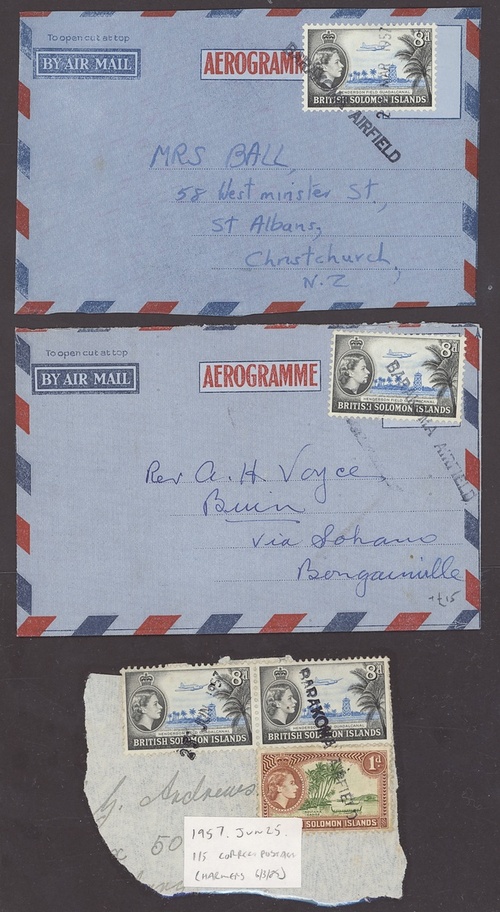 To open cut at top
BY AIR MAIL
AEROGRAMME
8d
HENDERSON FIELD GUADALCANAL
BRITISH SOLOMON ISLANDS
MAR 195
AIRFIELD
MRS BALL,
58 Westminster St,
St Albans,
Christchurch,
N.Z
To open cut at top
BY AIR MAIL
AEROGRAMME
8d
HENDERSON FIELD GUADALCANAL
BRITISH SOLOMON ISLANDS
BARAKOMA AIRFIELD
Rev A. H. Voyce
Buin
Via Sohano
Bougainville
8d
8d
HENDERSON FIELD GUADALCANAL
BRITISH SOLOMON ISLANDS
BRITISH SOLOMON ISLANDS
JUN 1957
BARAKOMA AIRFIELD
1d
SOLOMON ISLANDS
G. Andrews
50
1957. JUN 25.
1/5 CORRECT POSTAGE
(HARMERS 6/3/89)